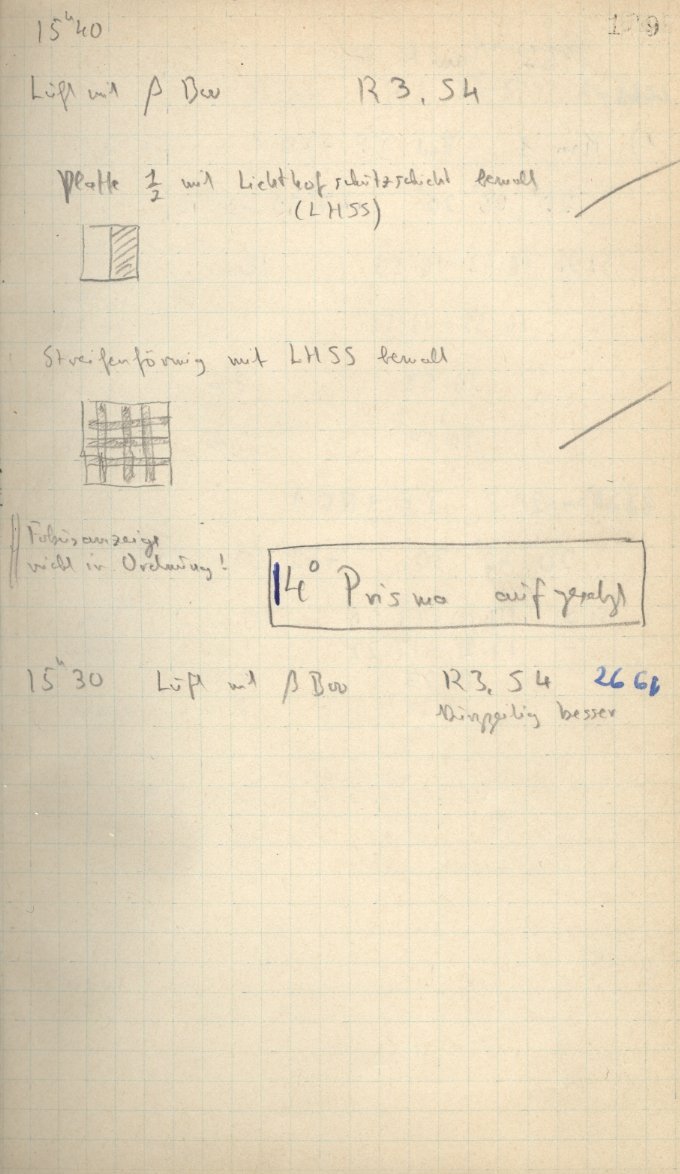 15ʰ40
179
Luft mit β Boo R 3, S 4
Platte ½ mit Lichthofschützschicht bemalt
(LHSS)
Streifenförmig mit LHSS bemalt
Fokusanzeige
nicht in Ordnung!
14° Prisma aufgesetzt
15ʰ30 Luft mit β Boo R 3, S 4 2661
besser